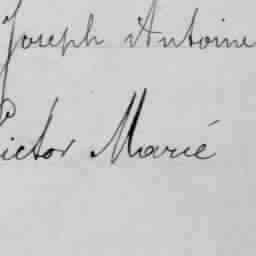 Joseph Antoine
Victor Marié